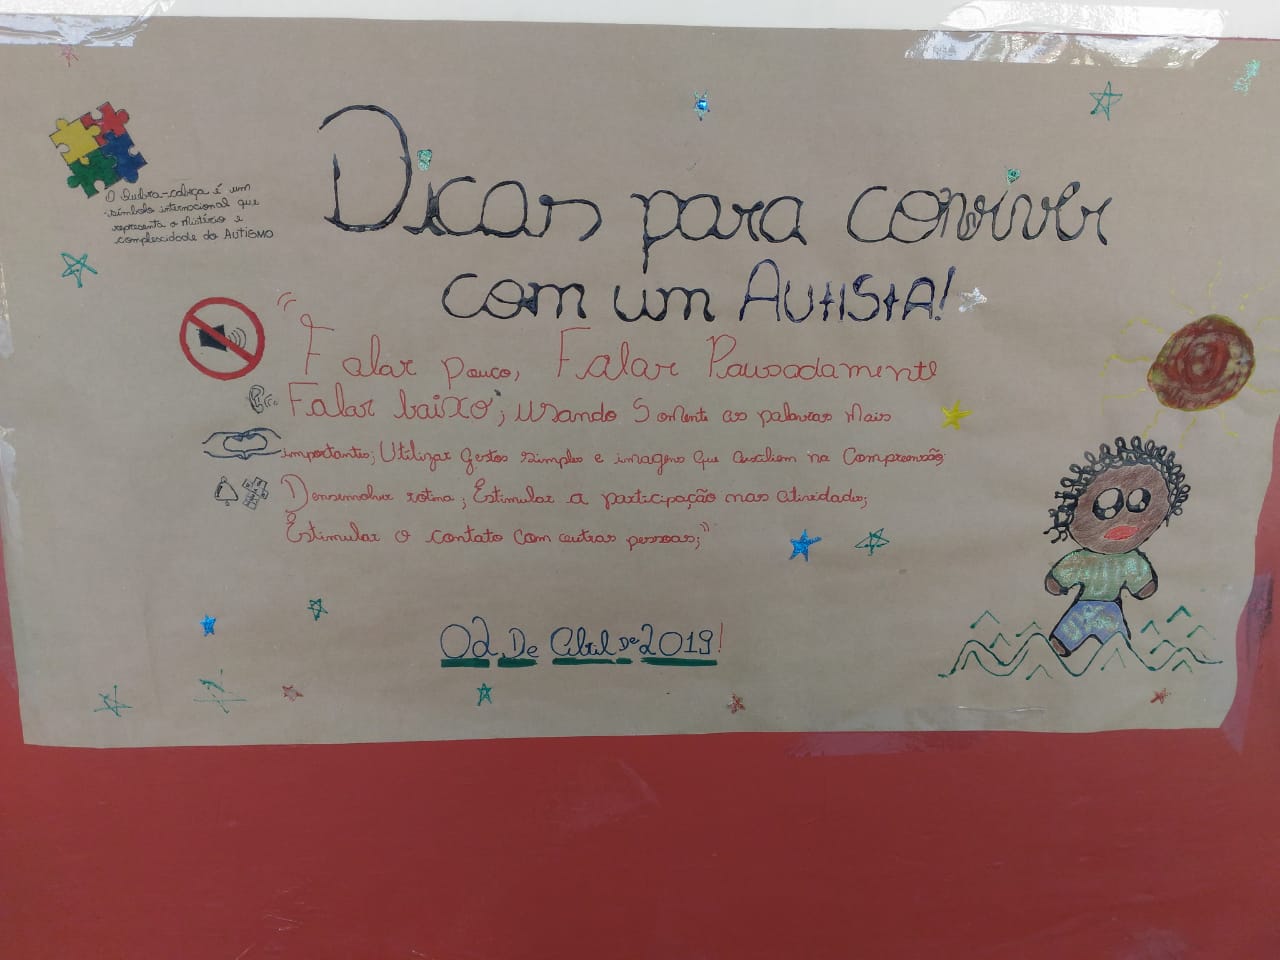 O Quebra-cabeça é um
símbolo internacional que
representa o Mistério e
complexcidade do AUTISMO
Dicas para conviver
com um AUtIStA!
"Falar pouco, Falar Pausadamente
Falar baixo; usando Somente as palavras Mais
importantes; Utilizar Gestos simples e imagens que auxiliem na Compreensão;
Densenvolver rotina; Estimular a participação nas atividades;
Estimular o contato Com outras pessoas;"
02 De Abril De 2019!